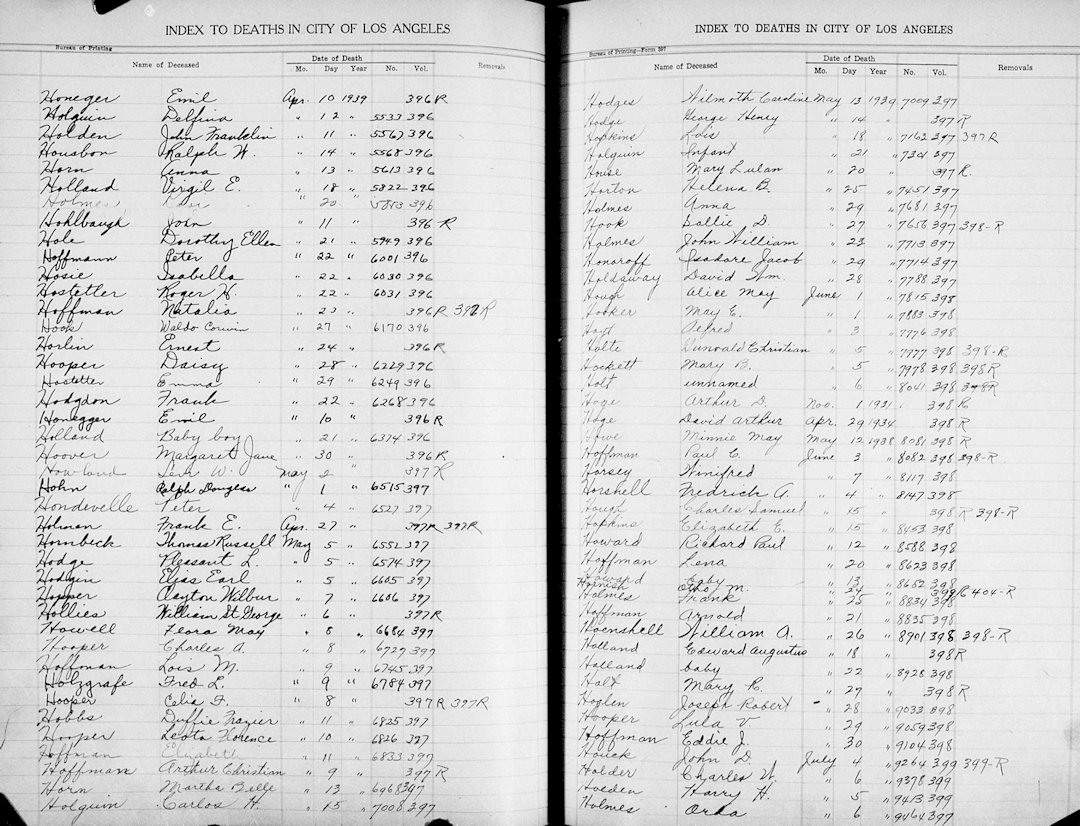 INDEX TO DEATHS IN CITY OF LOS ANGELES
Bureau of Printing
Name of Deceased Date of Death Removals
Mo. Day Year No. Vol.
Honeger Emil Apr. 10 1939 396 R
Holguin Delfina " 12 " 5533 396
Holden John Franklin " 11 " 5567 396
Housbon Ralph W. " 14 " 5568 396
Horn Anna " 13 " 5613 396
Holland Virgil E. " 18 " 5822 396
Holmes " 20 396
Hohlbaugh John " 11 " 396 R
Hole Dorothy Ellen " 21 " 5949 396
Hoffmann Peter " 22 " 6001 396
Hosie Isabella " 22 " 6030 396
Hostetler Roger H. " 22 " 6031 396
Hoffman Natalia " 23 " 396 R 392 R
Hook Waldo Corwin " 27 " 6170 396
Horlin Ernest " 24 " 396 R
Hooper Daisy " 28 " 6229 396
Hostetter Emma " 29 " 6249 396
Hodgdon Frank " 22 " 6268 396
Honegger Emil " 10 " 396 R
Holland Baby boy " 21 " 6374 396
Hoover Margaret Jane " 30 " 396 R
Howland Levi W. May 2 " 397 R
Hohn Ralph Douglass " 1 " 6515 397
Hondeville Peter " 4 " 6527 397
Holman Frank E. Apr. 27 " 397R 397R
Hornbeck Thomas Russell May 5 " 6552 397
Hodge Pleasant L. " 5 " 6574 397
Hodgin Elias Earl " 5 " 6605 397
Hopper Clayton Wilbur " 7 " 6606 397
Hollies William St George " 6 " 397R
Howell Flora May " 8 " 6684 397
Hooper Charles A. " 8 " 6727 397
Hoffman Lois M. " 9 " 6745 397
Holzgrafe Fred L. " 9 " 6784 397
Hooper Celia F. " 8 " 397R 397R
Hobbs Duffie Frazier " 11 " 6825 397
Hooper Leota Florence " 10 " 6826 397
Hoffman Elizabet " 11 " 6833 397
Hoffman Arthur Christian " 9 " 397 R
Horn Martha Belle " 13 " 6968 397
Holguin Carlos H. " 15 " 7008 397
INDEX TO DEATHS IN CITY OF LOS ANGELES
Bureau of Printing—Form 397
Name of Deceased Date of Death Removals
Mo. Day Year No. Vol.
Hodges Wilmoth Caroline May 13 1939 7009 397
Hodge George Henry " 14 " 397 R
Hopkins Lois " 18 " 7162 397 397 R
Holguin Infant " 21 " 7301 397
House Mary Lulan " 20 " 397 R.
Horton Helena B. " 25 " 7451 397
Holmes Anna " 29 " 7681 397
Hook Sallie D. " 27 " 7656 397 398-R
Holmes John William " 23 " 7713 397
Honoroff Isadore Jacob " 29 " 7714 397
Holdaway David Wm. " 28 " 7788 397
Hough Alice May June 1 " 7815 398
Hooker May E. " 1 " 7883 398
Alfred " 3 " 7776 398
Holte Christian " 5 " 7977 398 398-R
Hockett Mary B. " 5 " 7978 398 398R
Holt unnamed " 6 " 8041 398 398R
Hoge Arthur D. Nov. 1 1931 398 R
Hoge David Arthur Apr. 29 1934 398 R
Howe Minnie May May 12 1938 8081 398 R
Hoffman Paul C. June 3 " 8082 398 398-R
Horsey Winifred " 7 " 8117 398
Horshell Fredrick A. " 4 " 8147 398
Hough Charles Samuel " 15 " 398 R 398-R
Hopkins Elizabeth E. " 15 " 8453 398
Howard Richard Paul " 12 " 8588 398
Hoffman Lena " 20 " 8623 398
Howard baby " 13 " 8652 398
Hornish Otho M. " 24 " 399 R 404-R
Holmes Frank " 25 " 8834 398
Hoffman Arnold " 21 " 8835 398
Hoenshell William A. " 26 " 8901 398 398-R
Holland Edward Augustus " 18 " 398R
Holland baby " 22 " 8928 398
Holt Mary R. " 27 " 398 R
Hoglen Joseph Robert " 28 " 9033 398
Hooper Lula V " 29 " 9059 398
Hoffman Eddie J. " 30 " 9104 398
Houck John D. July 4 " 9264 399 399-R
Holder Charles W. " 6 " 9378 399
Hoeden Harry H. " 5 " 9413 399
Holmes Orda " 6 " 9464 397